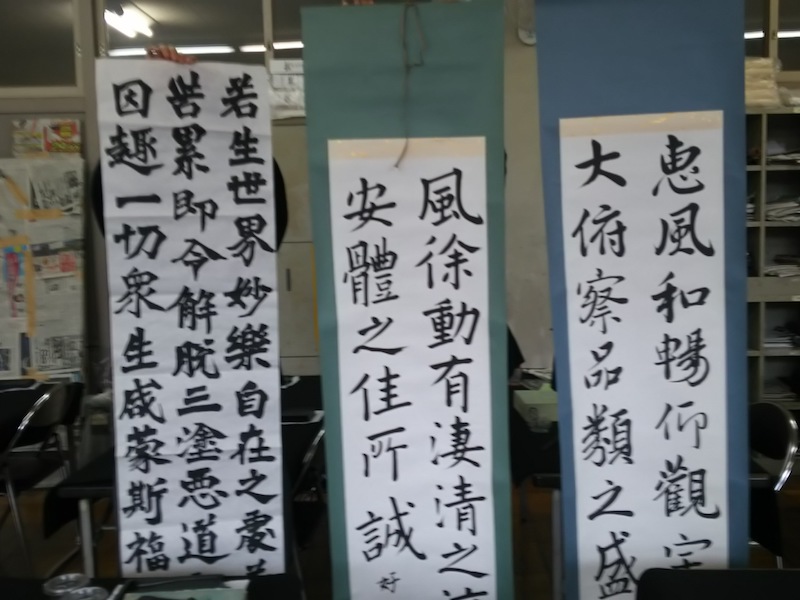 恵風和暢仰觀宇
大俯察品類之盛
風徐動有淒清之
安體之佳所誠
好
若生世界妙樂自在之處
苦累即令解脱三塗悪道
因趣一切衆生咸蒙斯福